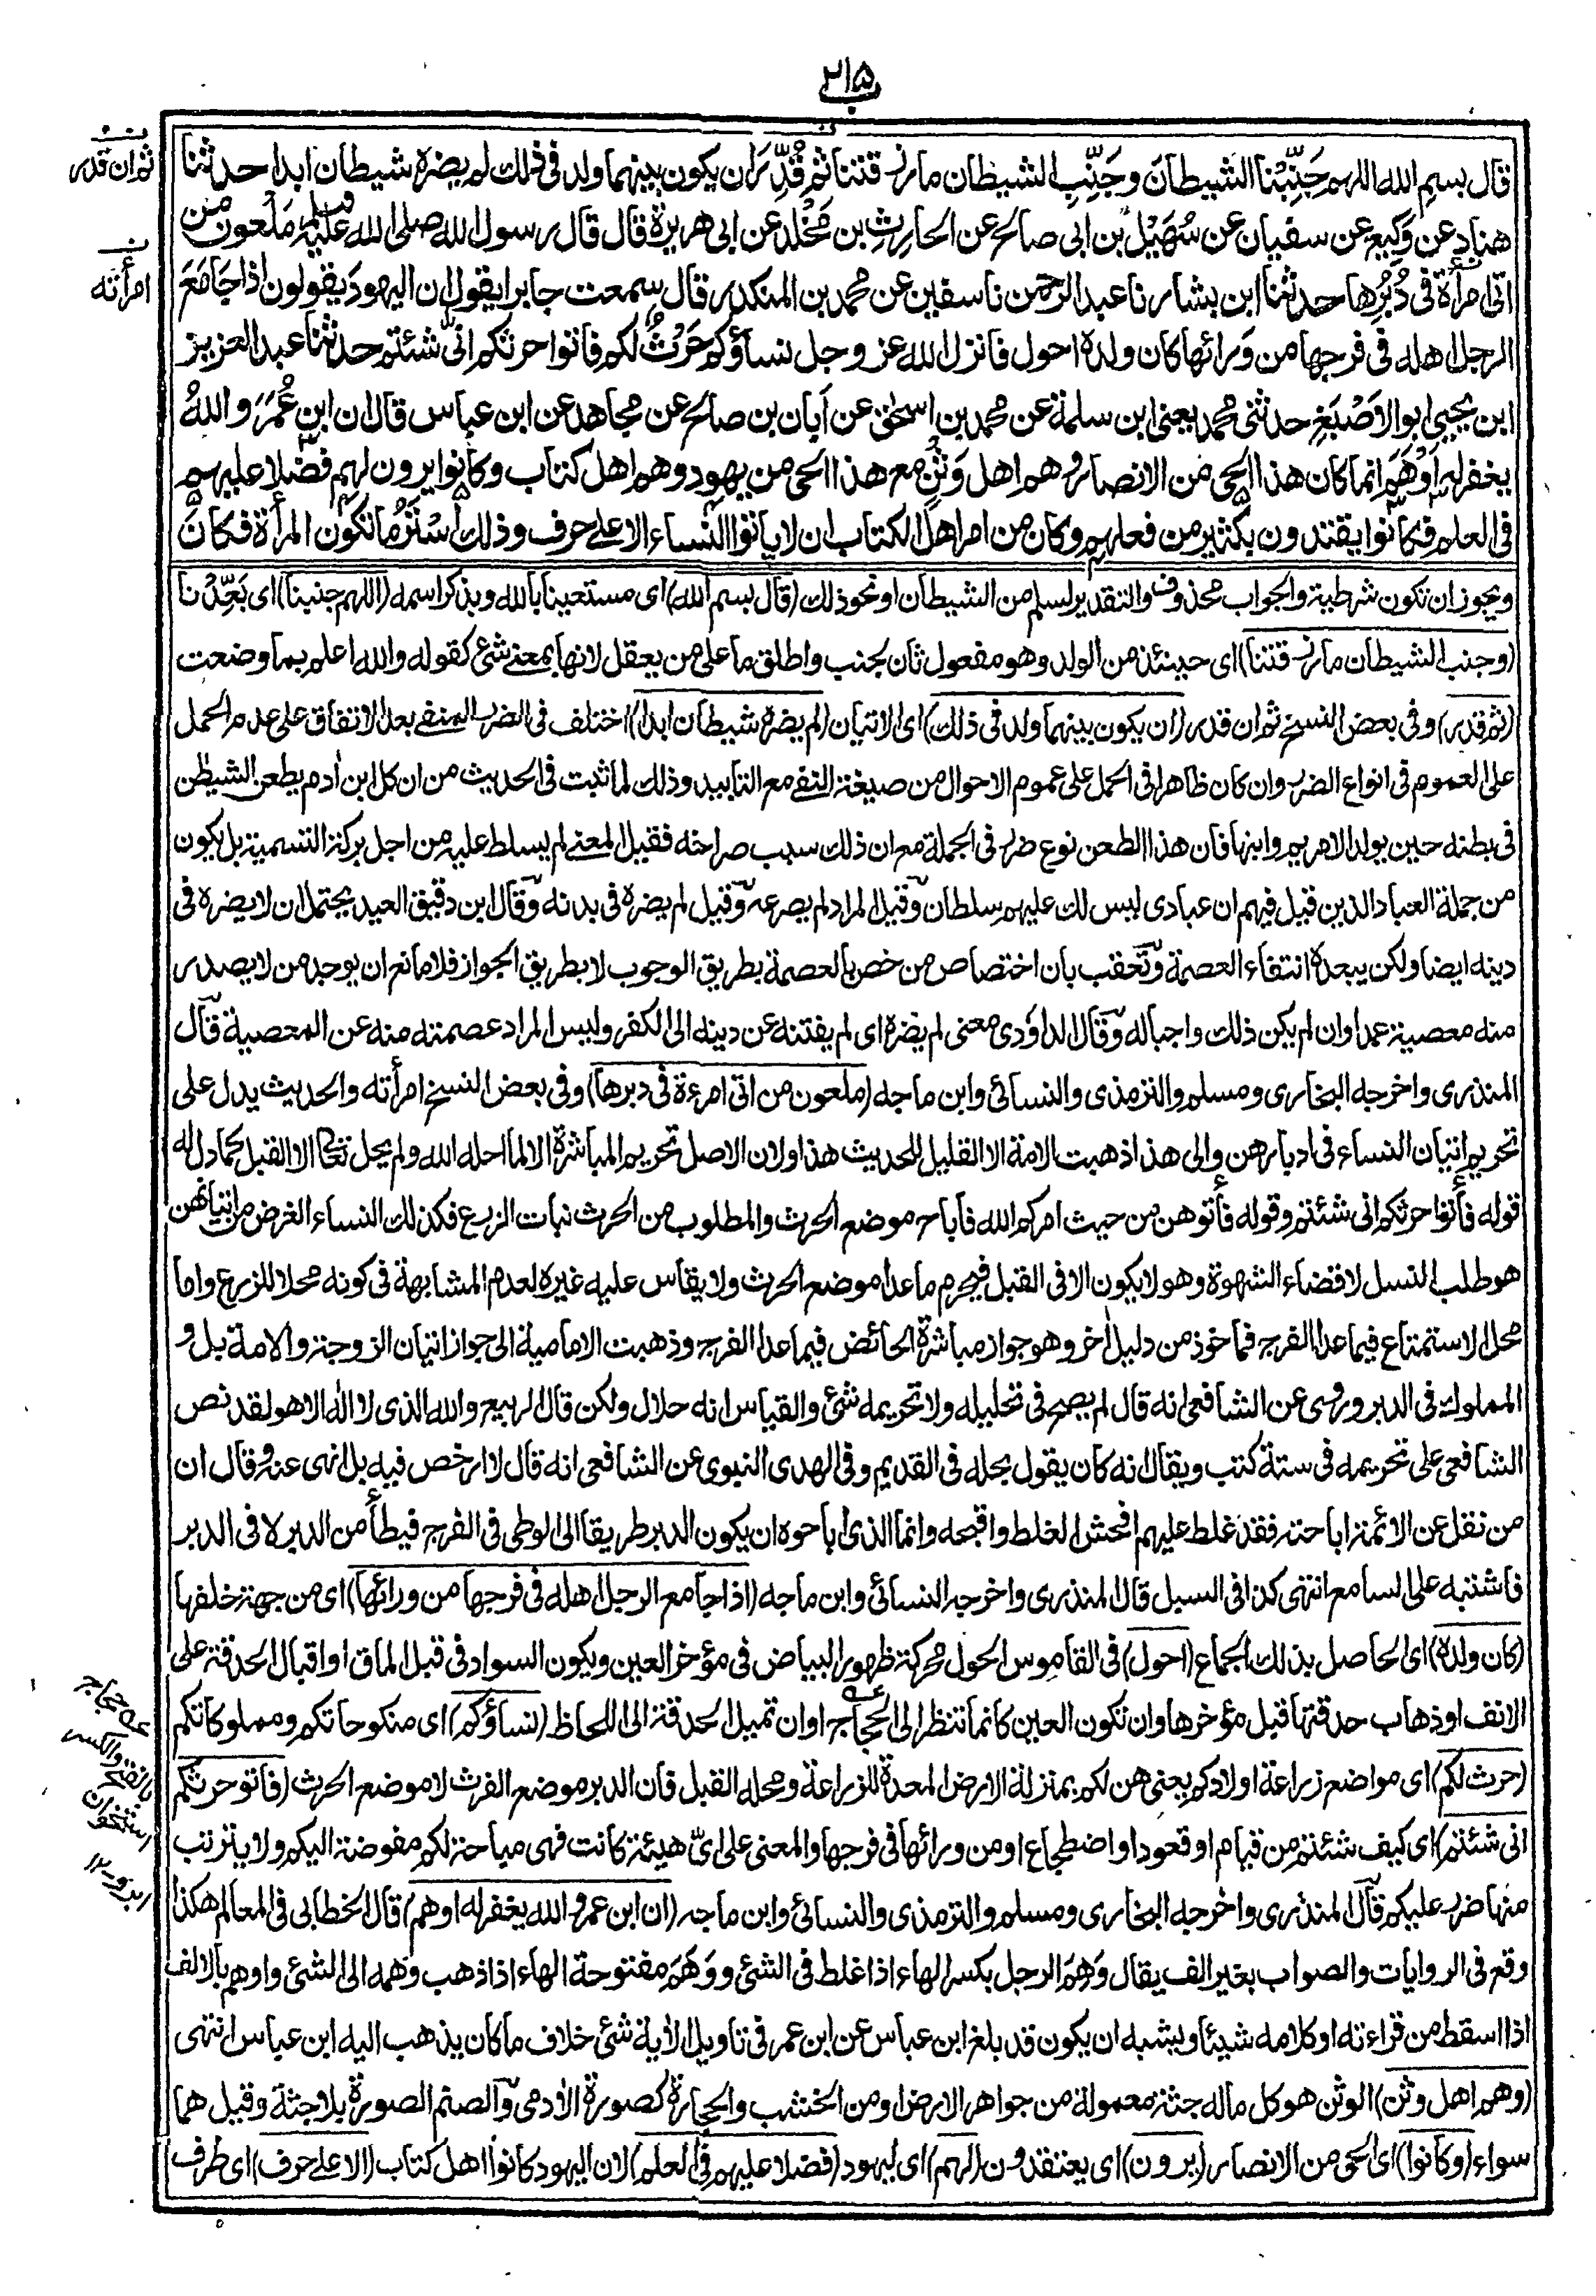 ٢١٥
قال بسم الله اللهم جَنِّبْنا الشيطانَ وجَنِّبِ الشيطان ما رزقتنا ثم قُدِّرَ ان يكون بينهما ولد فى ذلك لم يضره شيطان ابدا حدثنا
هناد عن وَكِيع عن سفيان عن سُهَيْل بن ابى صالح عن الحارِثِ بن مَخْلَد عن ابى هريرة قال قال رسول الله صلى الله عليه وسلم مَلْعون من
اتى امرأة فى دُبُرِها حدثنا ابن بشار نا عبد الرحمن نا سفين عن محمد بن المنكدر قال سمعت جابرا يقول ان اليهودَ يقولون اذا جَامَعَ
الرجل اهله فى فرجها من وَرائها كان ولده احول فانزل الله عز وجل نساؤكم حَرْثٌ لكم فاتوا حرثكم انّى شئتم حدثنا عبد العزيز
ابن يحيى ابو الاَصْبَغِ حدثنى محمد يعنى ابن سلمة عن محمد بن اسحٰق عن اَبان بن صالح عن مجاهد عن ابن عباس قال ان ابن عُمَرَ واللهُ
يغفر له اَوْهَمَ انما كان هذا الحى من الانصار وهم اهل وَثَنٍ مع هذا الحى من يهود وهم اهل كتاب وكانوا يرون لهم فضلا عليهم
فى العلم فكانوا يقتدون بكثير من فعلهم وكان من امر اهل الكتاب ان لا ياتوا النساء الا على حرف وذلك اَسْتَرُ ما تكون المرأة فكان
ويجوز ان تكون شرطية والجواب محذوف والتقدير لسلم من الشيطان او نحو ذلك (قال بسم الله) اى مستعينا بالله وبذكر اسمه (اللهم جنبنا) اى بَعِّدْنا
(وجنب الشيطان ما رزقتنا) اى حينئذ من الولد وهو مفعول ثان لجنب واطلق ما على من يعقل لانها بمعنى شئ كقوله والله اعلم بما وضعت
(ثم قدر) وفى بعض النسخ ثم ان قدر (ان يكون بينهما ولد فى ذلك) اى الاتيان (لم يضره شيطان ابدا) اختلف فى الضرر المنفى بعد الاتفاق على عدم الحمل
على العموم فى انواع الضرر وان كان ظاهرا فى الحمل على عموم الاحوال من صيغة النفى مع التابيد وذلك لما ثبت فى الحديث من ان كل ابن اٰدم يطعن الشيطٰن
فى بطنه حين يولد الا مريم وابنها فان هذا الطعن نوع ضرر فى الجملة مع ان ذلك سبب صراخه فقيل المعنى لم يسلط عليه من اجل بركة التسمية بل يكون
من جملة العباد الذين قيل فيهم ان عبادى ليس لك عليهم سلطان وقيل المراد لم يصرعه وقيل لم يضره فى بدنه وقال ابن دقيق العيد يحتمل ان لا يضره فى
دينه ايضا ولكن يبعده انتفاء العصمة وتعقب بان اختصاص من خص بالعصمة بطريق الوجوب لا بطريق الجواز فلا مانع ان يوجد من لا يصدر
منه معصية عمدا وان لم يكن ذلك واجبا له وقال الداودى معنى لم يضره اى لم يفتنه عن دينه الى الكفر وليس المراد عصمته منه عن المعصية قال
المنذرى واخرجه البخارى ومسلم والترمذى والنسائى وابن ماجه (ملعون من اتى امرءة فى دبرها) وفى بعض النسخ امرأته والحديث يدل على
تحريم اتيان النساء فى ادبارهن والى هذا ذهبت الامة الا القليل للحديث هذا ولان الاصل تحريم المباشرة الا لما احله الله ولم يحل تعالى الا القبل كما دل له
قوله فأتوا حرثكم انى شئتم وقوله فأتوهن من حيث امركم الله فاباح موضع الحرث والمطلوب من الحرث نبات الزرع فكذلك النساء الغرض من اتيانهن
هو طلب النسل لا قضاء الشهوة وهو لا يكون الا فى القبل فيحرم ما عدا موضع الحرث ولا يقاس عليه غيره لعدم المشابهة فى كونه محلا للزرع واما
محل الاستمتاع فيما عدا الفرج فماخوذ من دليل اٰخر وهو جواز مباشرة الحائض فيما عدا الفرج وذهبت الامامية الى جواز اتيان الزوجة والامة بل و
المملوك فى الدبر وروى عن الشافعى انه قال لم يصح فى تحليله ولا تحريمه شئ والقياس انه حلال ولكن قال الربيع والله الذى لا اله الا هو لقد نص
الشافعى على تحريمه فى ستة كتب ويقال انه كان يقول بحله فى القديم وفى الهدى النبوى عن الشافعى انه قال لا ارخص فيه بل انهى عنه وقال ان
من نقل عن الائمة اباحته فقد غلط عليهم افحش الغلط واقبحه وانما الذى اباحوه ان يكون الدبر طريقا الى الوطى فى الفرج فيطأ من الدبر لا فى الدبر
فاشتبه على السامع انتهى كذا فى السبل قال المنذرى واخرجه النسائى وابن ماجه (اذا جامع الرجل اهله فى فرجها من ورائها) اى من جهة خلفها
(كان ولده) اى الحاصل بذلك الجماع (احول) فى القاموس الحول محركة ظهور البياض فى مؤخر العين ويكون السواد فى قبل الماق او اقبال الحدقة على
الانف او ذهاب حدقتها قبل مؤخرها وان تكون العين كانما تنظر الى الحجاج او ان تميل الحدقة الى اللحاظ (نساؤكم) اى منكوحاتكم ومملوكاتكم
(حرث لكم) اى مواضع زراعة اولادكم يعنى هن لكم بمنزلة الارض المعدة للزراعة ومحله القبل فان الدبر موضع الفرث لا موضع الحرث (فاتو حرثكم
انى شئتم) اى كيف شئتم من قيام او قعود او اضطجاع او من ورائها فى فرجها والمعنى على اىّ هيئة كانت فهى مباحة لكم مفوضة اليكم ولا يترتب
منها ضرر عليكم قال المنذرى واخرجه البخارى ومسلم والترمذى والنسائى وابن ماجه (ان ابن عمر والله يغفر له اوهم) قال الخطابى فى المعالم هكذا
وقع فى الروايات والصواب بغير الف يقال وَهِمَ الرجل بكسر الهاء اذا غلط فى الشئ ووَهَمَ مفتوحة الهاء اذا ذهب وهمه الى الشئ واوهم بالالف
اذا اسقط من قراءته او كلامه شيئا ويشبه ان يكون قد بلغ ابن عباس عن ابن عمر فى تاويل الاٰية شئ خلاف ما كان يذهب اليه ابن عباس انتهى
(وهم اهل وثن) الوثن هو كل ماله جثة معمولة من جواهر الارض او من الخشب والحجارة كصورة الاٰدمى والصنم الصورة بلا جثة وقيل هما
سواء (وكانوا) اى الحى من الانصار (يرون) اى يعتقدون (لهم) اى ليهود (فضلا عليهم فى العلم) لان اليهود كانوا اهل كتاب (الا على حرف) اى طرف
ثم ان قدر
امرأته
عه حجاج
بالفتح والكسر
استخوان
ابرو ١٢